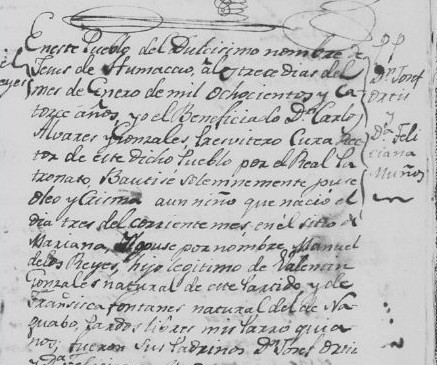 En este Pueblo del Dulcisimo nombre de
Jesus de Humacao, a los trece dias del
mes de Enero de mil Ochocientos y Ca
torce años, yo el Beneficiado Dn Carlo
Alvares y Gonzales Presvitero Cura Rec
tor de este dicho Pueblo por el Real Pa
tronato, Bautisé solemnemente, puse
Oleo y Crisma a un niño que nacio el
dia tres del corriente mes, en el sitio de
Mariana, y puse por nombre, Manuel
de los Reyes, hijo legitimo de Valentin
Gonzales natural de este Partido, y de
Fransisca fontanes natural del de Na
guabo, Pardos libres mis Parroquia
nos; fueron sus Padrinos Dn Josef Ortis
Reyes
PP
Dn Josef
Ortis
y
Da Feli
ciana
Muños